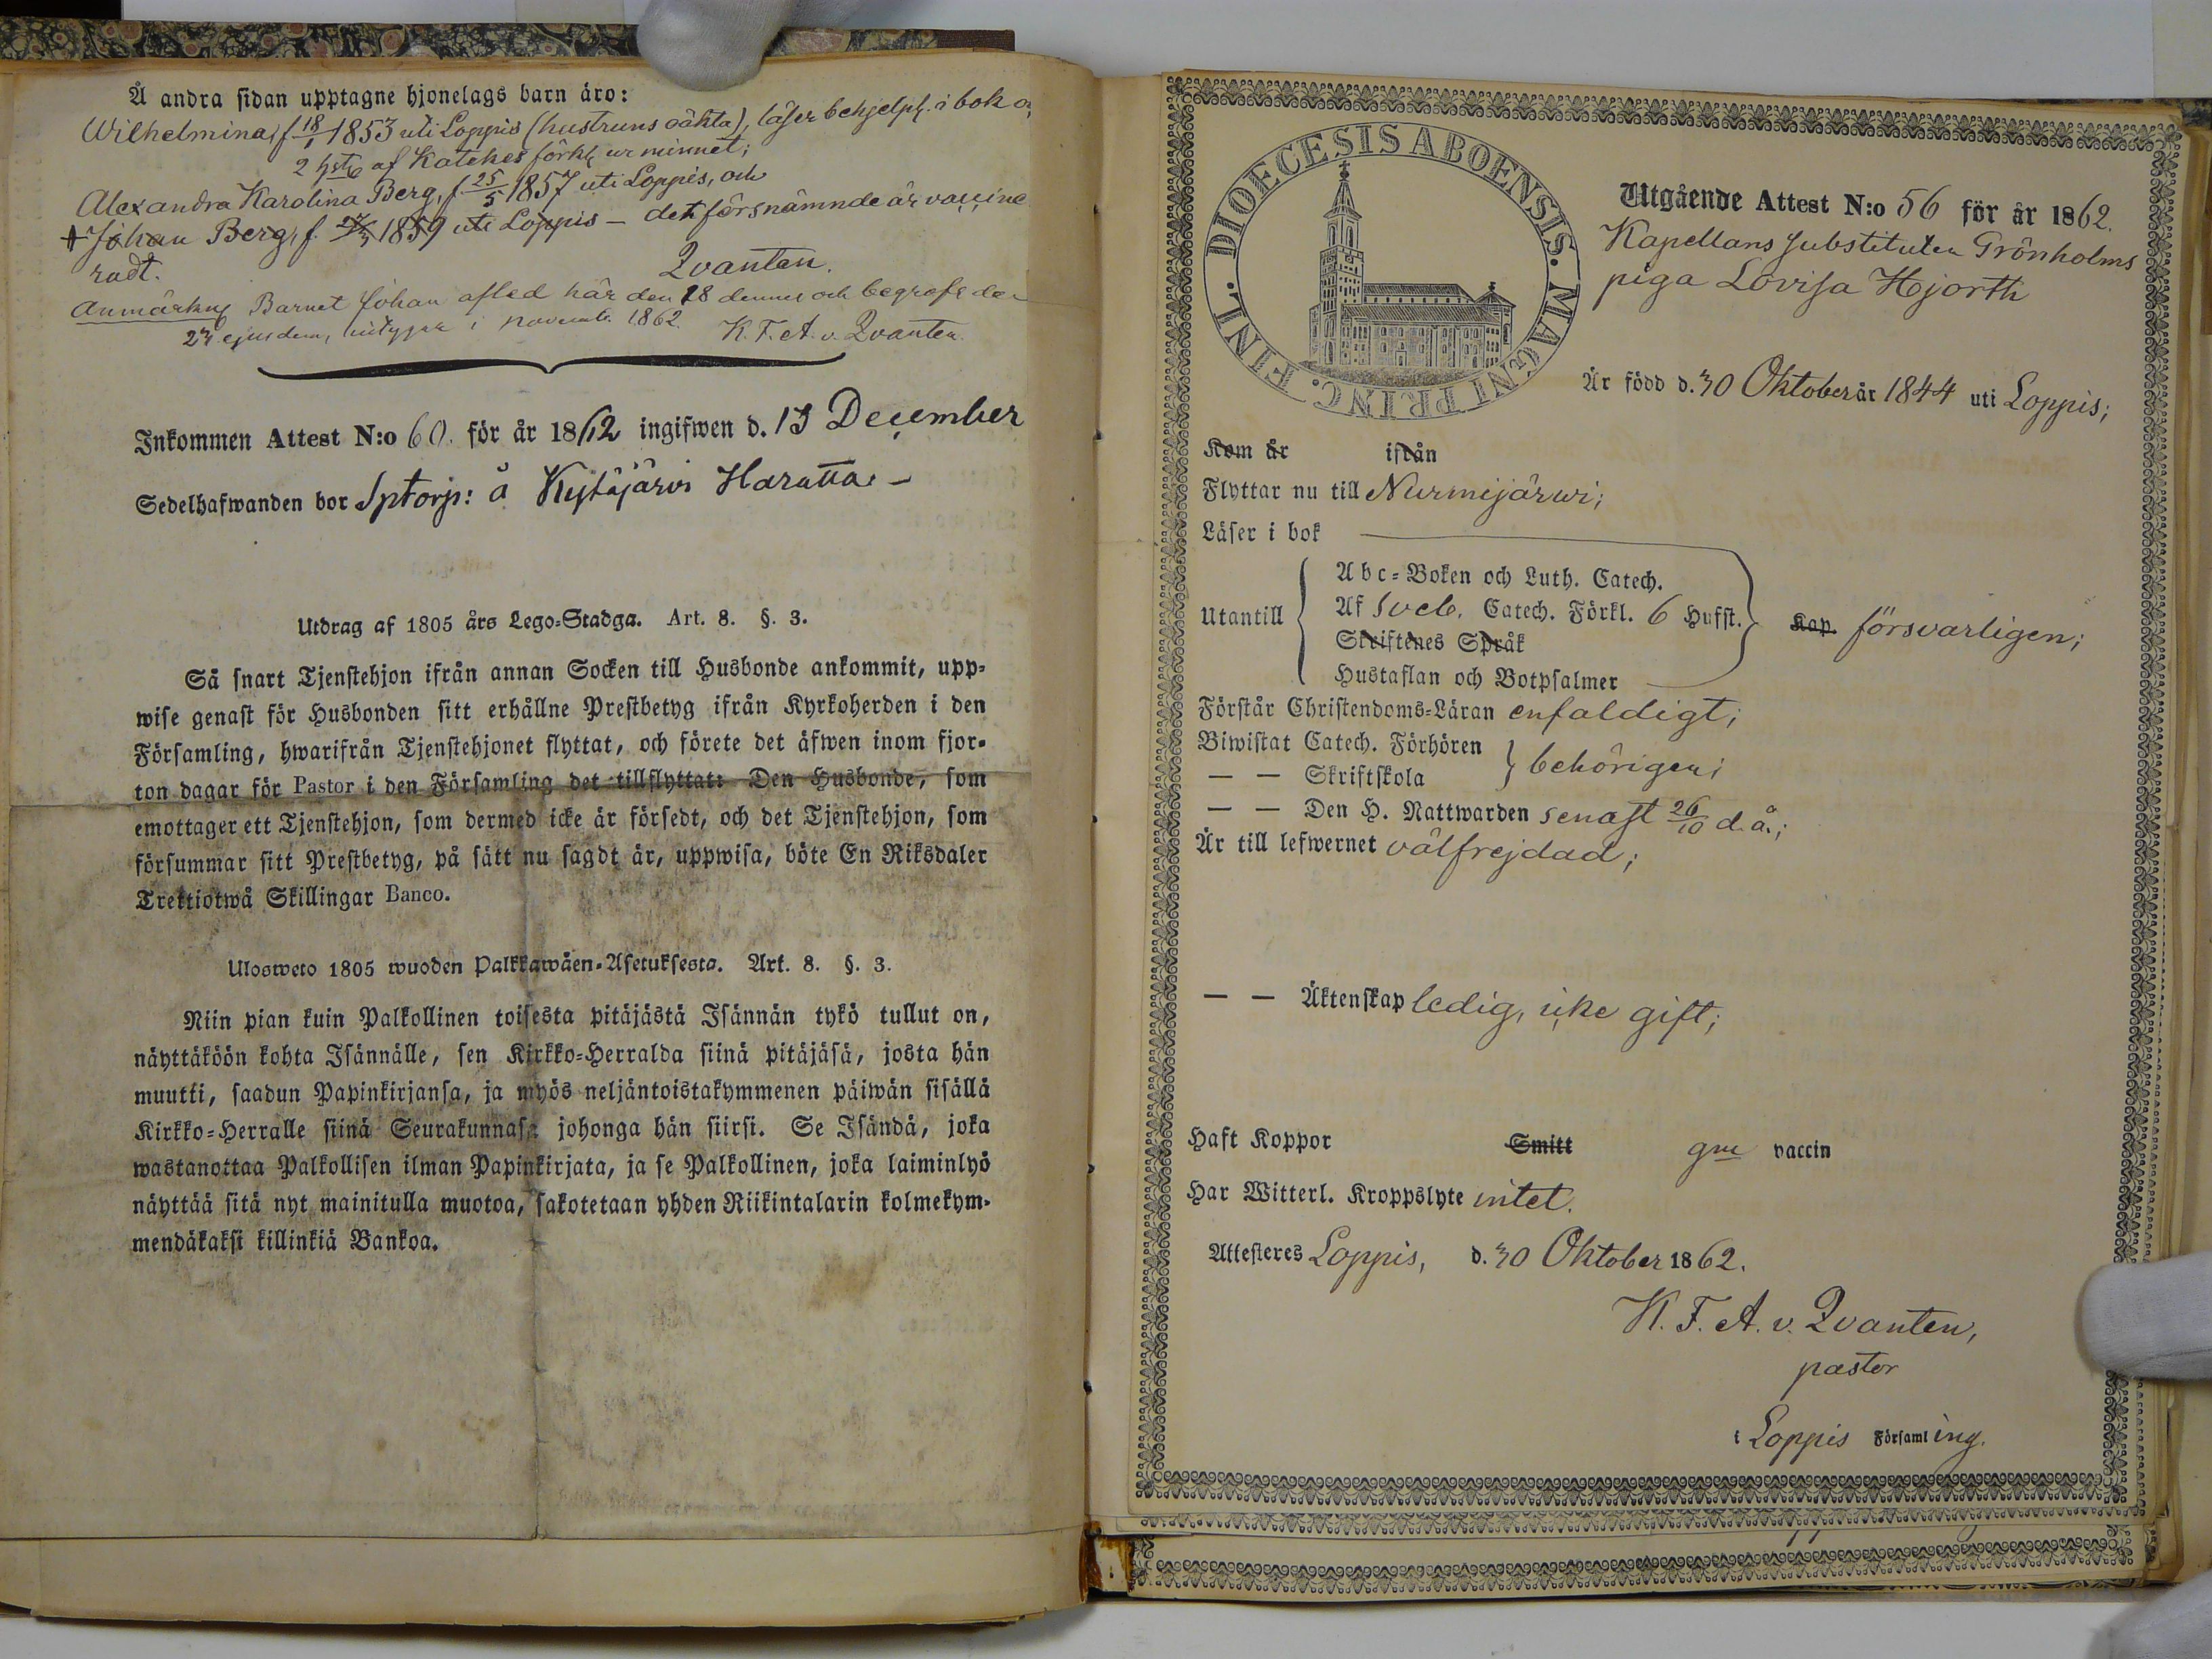 Å andra sidan upptagne hjonelags barn äro:
Wilhelmina, f 18/1 1853 uti Loppis (hustruns oäkta), läser behjelpl. i bok o.
2 hst af Katekes förkl ur minnet;
Alexandra Karolina Berg, f 25/5 1857 uti Loppis, och
Johan Berg, f. 1859 uti Loppis — det försnämnde är vaccine
radt.
Qvanten.
Anmärkn Barnet Johan afled här den 18 dennes och begrofs de
ejusdem, i novemb. 1862.
K. F. A. v. Qvanten.
Inkommen Attest N:o 60. för år 1862 ingifwen d. 13 December
Sedelhafwanden bor Sptorp: å Kytäjärvi Haratta. —
Utdrag af 1805 års Lego-Stadga. Art. 8. §. 3.
Så snart Tjenstehjon ifrån annan Socken till Husbonde ankommit, upp-
wise genast för Husbonden sitt erhållne Prestbetyg ifrån Kyrkoherden i den
Församling, hwarifrån Tjenstehjonet flyttat, och förete det äfwen inom fjor-
ton dagar för Pastor i den Församling det tillflyttat: Den Husbonde, som
emottager ett Tjenstehjon, som dermed icke är försedt, och det Tjenstehjon, som
försummar sitt Prestbetyg, på sätt nu sagdt är, uppwisa, böte En Riksdaler
Trettiotwå Skillingar Banco.
Ulosweto 1805 wuoden Palkkawäen-Asetuksesta. Art. 8. §. 3.
Niin pian kuin Palkollinen toisesta pitäjästä Isännän tykö tullut on,
näyttäköön kohta Isännälle, sen Kirkko-Herralda siinä pitäjäsä, josta hän
muutti, saadun Papinkirjansa, ja myös neljäntoistakymmenen päiwän sisällä
Kirkko-Herralle siinä Seurakunnasa johonga hän siirsi. Se Isändä, joka
wastanottaa Palkollisen ilman Papinkirjata, ja se Palkollinen, joka laiminlyö
näyttää sitä nyt mainitulla muotoa, sakotetaan yhden Riikintalarin kolmekym-
mendäkaksi killinkiä Bankoa.
DIOECESIS ABOENSIS. MAGNI PRINC. FINL.
Utgående Attest N:o 56 för år 1862.
Kapellans substituten Grönholms
piga Lovisa Hjorth
Är född d. 30 Oktober år 1844 uti Loppis;
Kom år ifrån
Flyttar nu till Nurmijärwi;
Läser i bok
Utantill
Abc-Boken och Luth. Catech.
Af Sveb. Catech. Förkl. 6 Hufst.
Skriftenes Språk
Hustaflan och Botpsalmer
Kap. försvarligen;
Förstår Christendoms-Läran enfaldigt;
Biwistat Catech. Förhören
— — Skriftskola
behörigen;
— — Den H. Nattwarden senast 26/10 d. å.;
Är till lefwernet välfrejdad;
— — Äktenskap ledig, icke gift;
Haft Koppor Smitt gm vaccin
Har Witterl. Kroppslyte intet.
Attesteres Loppis, d. 30 Oktober 1862.
K. F. A. v. Qvanten,
pastor
i Loppis Församling.